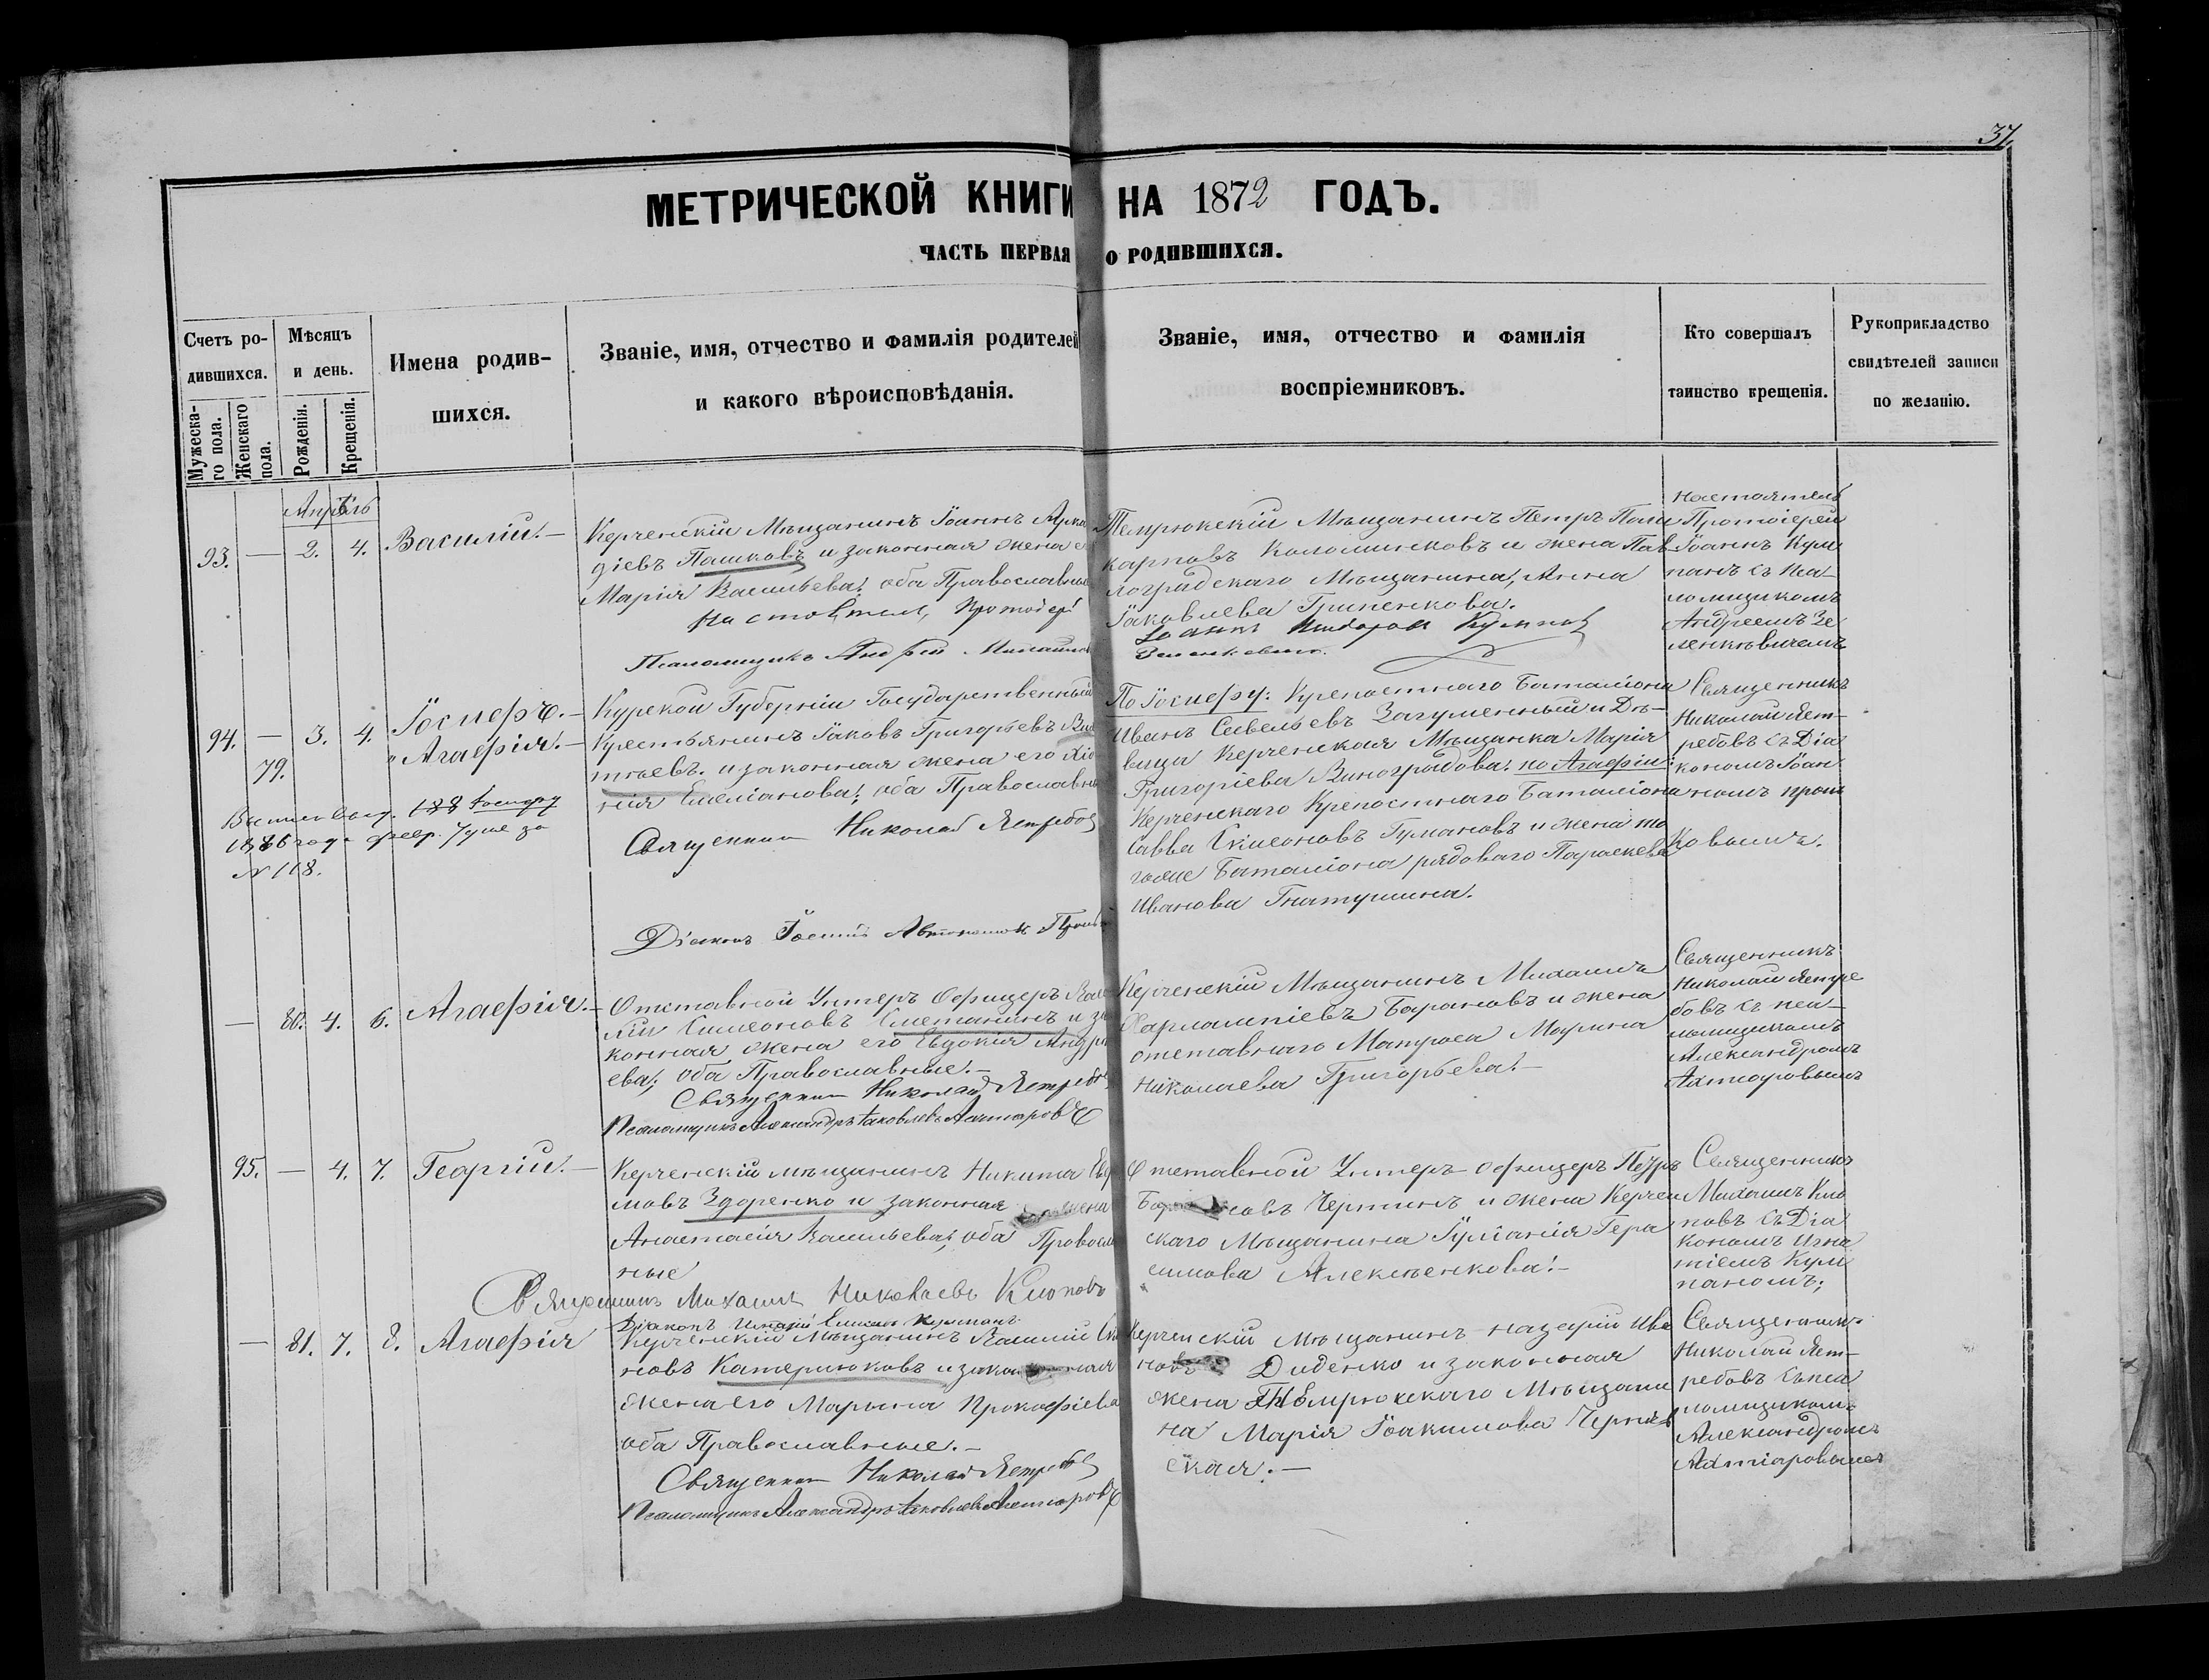 37.
МЕТРИЧЕСКОЙ КНИГИ НА 1872 ГОДЪ.
ЧАСТЬ ПЕРВАЯ О РОДИВШИХСЯ.
Счетъ ро-
дившихся.
Мужеска-
го пола.
Женскаго
пола.
Мѣсяцъ
и день.
Рожденія.
Крещенія.
Имена родив-
шихся.
Званіе, имя, отчество и фамилія родителей
и какого вѣроисповѣданія.
Званіе, имя, отчество и фамилія
воспріемниковъ.
Кто совершалъ
таинство крещенія.
Рукоприкладство
свидѣтелей записи
по желанію.
Апрѣль
93. — 2. 4. Василій. —
Керченскій Мѣщанинъ Іоаннъ Арка
діевъ Пашковъ и законная жена е
Марія Васильева; оба Православные
Настоятель, Протоіерей
Іоаннъ Кумпанъ
Псаломщикъ Андрей
Зеленкевичъ.
Темрюкскій Мѣщанинъ Петръ Поли
карповъ Коломийковъ и жена Пав
лоградскаго Мѣщанина, Анна
Іаковлева Гриненкова.
Настоятель
Протоіерей
Іоаннъ Кум
панъ съ Пса-
ломщикомъ
Андреемъ Зе
ленкевичемъ
94. — 3. 4. Іосифъ. —
79. " Агафія. —
Курской Губерніи Государственный
Крестьянинъ Іаковъ Григорьевъ
тьевъ. и законная жена его
нія Емеліанова; оба Православные
Священникъ Николай Ястребовъ
Діаконъ Іоаннъ
Выписъ выд. 188 Іосифу
1886 года февр. 7 дня за
№ 118.
По Іосифу: Крепостнаго Баталіона
Иванъ Савельевъ Загуменный и Дѣ-
вица Керченская Мѣщанка Марія
Григоріева Виноградова. по Агафіи:
Керченскаго Крепостнаго Баталіона
Савва Симеоновъ Гумановъ и жена то
гоже Баталіона рядоваго Параскева
Иванова Гнатушина.
Священникъ
Николай Яст-
ребовъ съ Діа
кономъ Іоан
номъ
— 80. 4. 6. Агафія. —
Отставной Унтеръ Офицеръ Васи
лій Симеоновъ Сметанинъ и за
конная жена его Евдокія Андре
ева; оба Православные. —
Священникъ Николай Ястребовъ
Псаломщикъ Александръ Іаковлевъ Ахтыаровъ
Керченскій Мѣщанинъ Михаилъ
Харлампіевъ Барановъ и жена
отставнаго Матроса Марина
Николаева Григорьева. —
Священникъ
Николай Ястре
бовъ съ пса-
ломщикомъ
Александромъ
Ахтіаровымъ
95. — 4. 7. Георгій. —
Керченскій мѣщанинъ Никита
мовъ Здоренко и законная жена
Анастасія Васильева; оба Православ
ные
Священникъ Михаилъ Николаевъ Клоповъ
Діаконъ Игнатій Кумпанъ
Отставной Унтеръ-Офицеръ Петръ
Чертинъ и жена Керчен
скаго Мѣщанина Іуліанія Гера
симова Алексѣенкова. —
Священникъ
Михаилъ Кло
повъ съ Діа
кономъ Игна
тіемъ Кум
паномъ;
— 81. 7. 8. Агафія
Керченскій Мѣщанинъ Василій
новъ Катерюковъ и законная
жена его Марина Прокофіева
оба Православные. —
Священникъ Николай Ястребовъ
Псаломщикъ Александръ Іаковлевъ Ахтіаровъ
Керченскій Мѣщанинъ Назарій Ива
новъ Диденко и законная
жена Темрюкскаго Мѣщани
на Марія Іоакимова Черняв
ская. —
Священникъ
Николай Яст-
ребовъ съ пса
ломщикомъ
Александромъ
Ахтіаровымъ